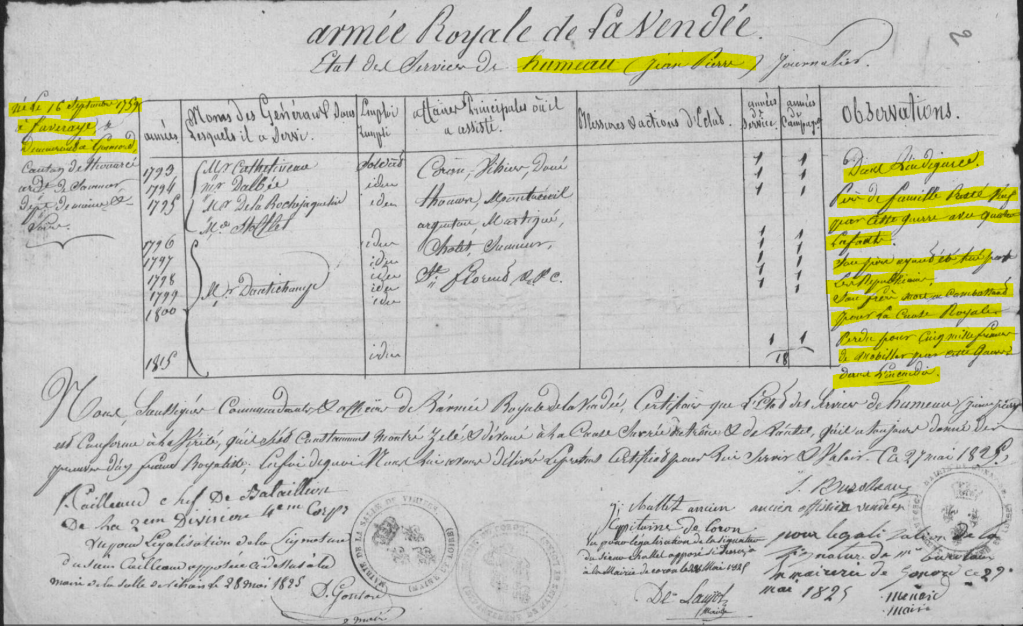 armée Royale de La Vendée.
Etat des Services de humeau (jean Pierre) Journalier.
2
né le 16 Septembre
à faveraye
Demeurant à Gonnord,
Canton de Thouarcé
ardt. de Saumur,
dépt. de maine &
Loire
années
Noms des Généraux Sous Lesquels il a Servi.
Emploi Rempli
affaires Principales où il a assisté.
Blessures & actions d'Eclat.
années de Service
années de Campagne
Observations.
1793 Mr. Cathelineau Soldat Coron, Vihier, Doué 1 1
1794 Mr. Dalbée idem 1 1
1795 Mr. De la Rochejaquelin idem thouars, Montreuil 1 1
Mr. Stofflet argenton, Martigné,
1796 idem Cholet, Saumur, 1 1
1797 idem 1 1
1798 idem St. florent &.c. 1 1
1799 Mr. Dautichamp idem 1 1
1800
1815 idem 1 1
18
Dans L'indigence.
Père de famille Resté Veuf
par Cette guerre avec quatre
Enfants.
Son père ayant été tué par
Les Républicains.
Son frère mort en Combattant
pour La Cause Royale
Perdu pour Cinq mille francs
de Mobilier par cette Guerre
dans L'incendie.
Nous Soussignés Commandants & officiers de L'armée Royale de la Vendée, Certifions que L'Etat des Services de humeau (jean pierre)
est Conforme à la Vérité, qu'il s'est Constamment Montré Zélé & dévoué à la Cause Sacrée du trône & de L'autel, qu'il a toujours donné des
preuves d'un franc Royaliste. En foi de quoi Nous lui avons délivré Le présent Certificat pour Lui Servir & Valoir. Ce 27 mai 1825.
Cailleaud chef De Bataillion
De La 2em Division 4em Corps
Vu pour Légalisation de la Signature
du Sieur Cailleau apposée Ci dessus à la
mairie de la Salle de Vihiers le 28 mai 1825
MAIRIE DE LA SALLE DE VIHIERS
challet ancien
Capitaine de Coron
Vu pour légalisation de la signature
du Sieur challet apposé
à la Mairie de Coron le 28 Mai 1825
ancien officier vendéen
pour legalisation de La
signature de mr
En mairie de Gonord ce 29
mai 1825
maire